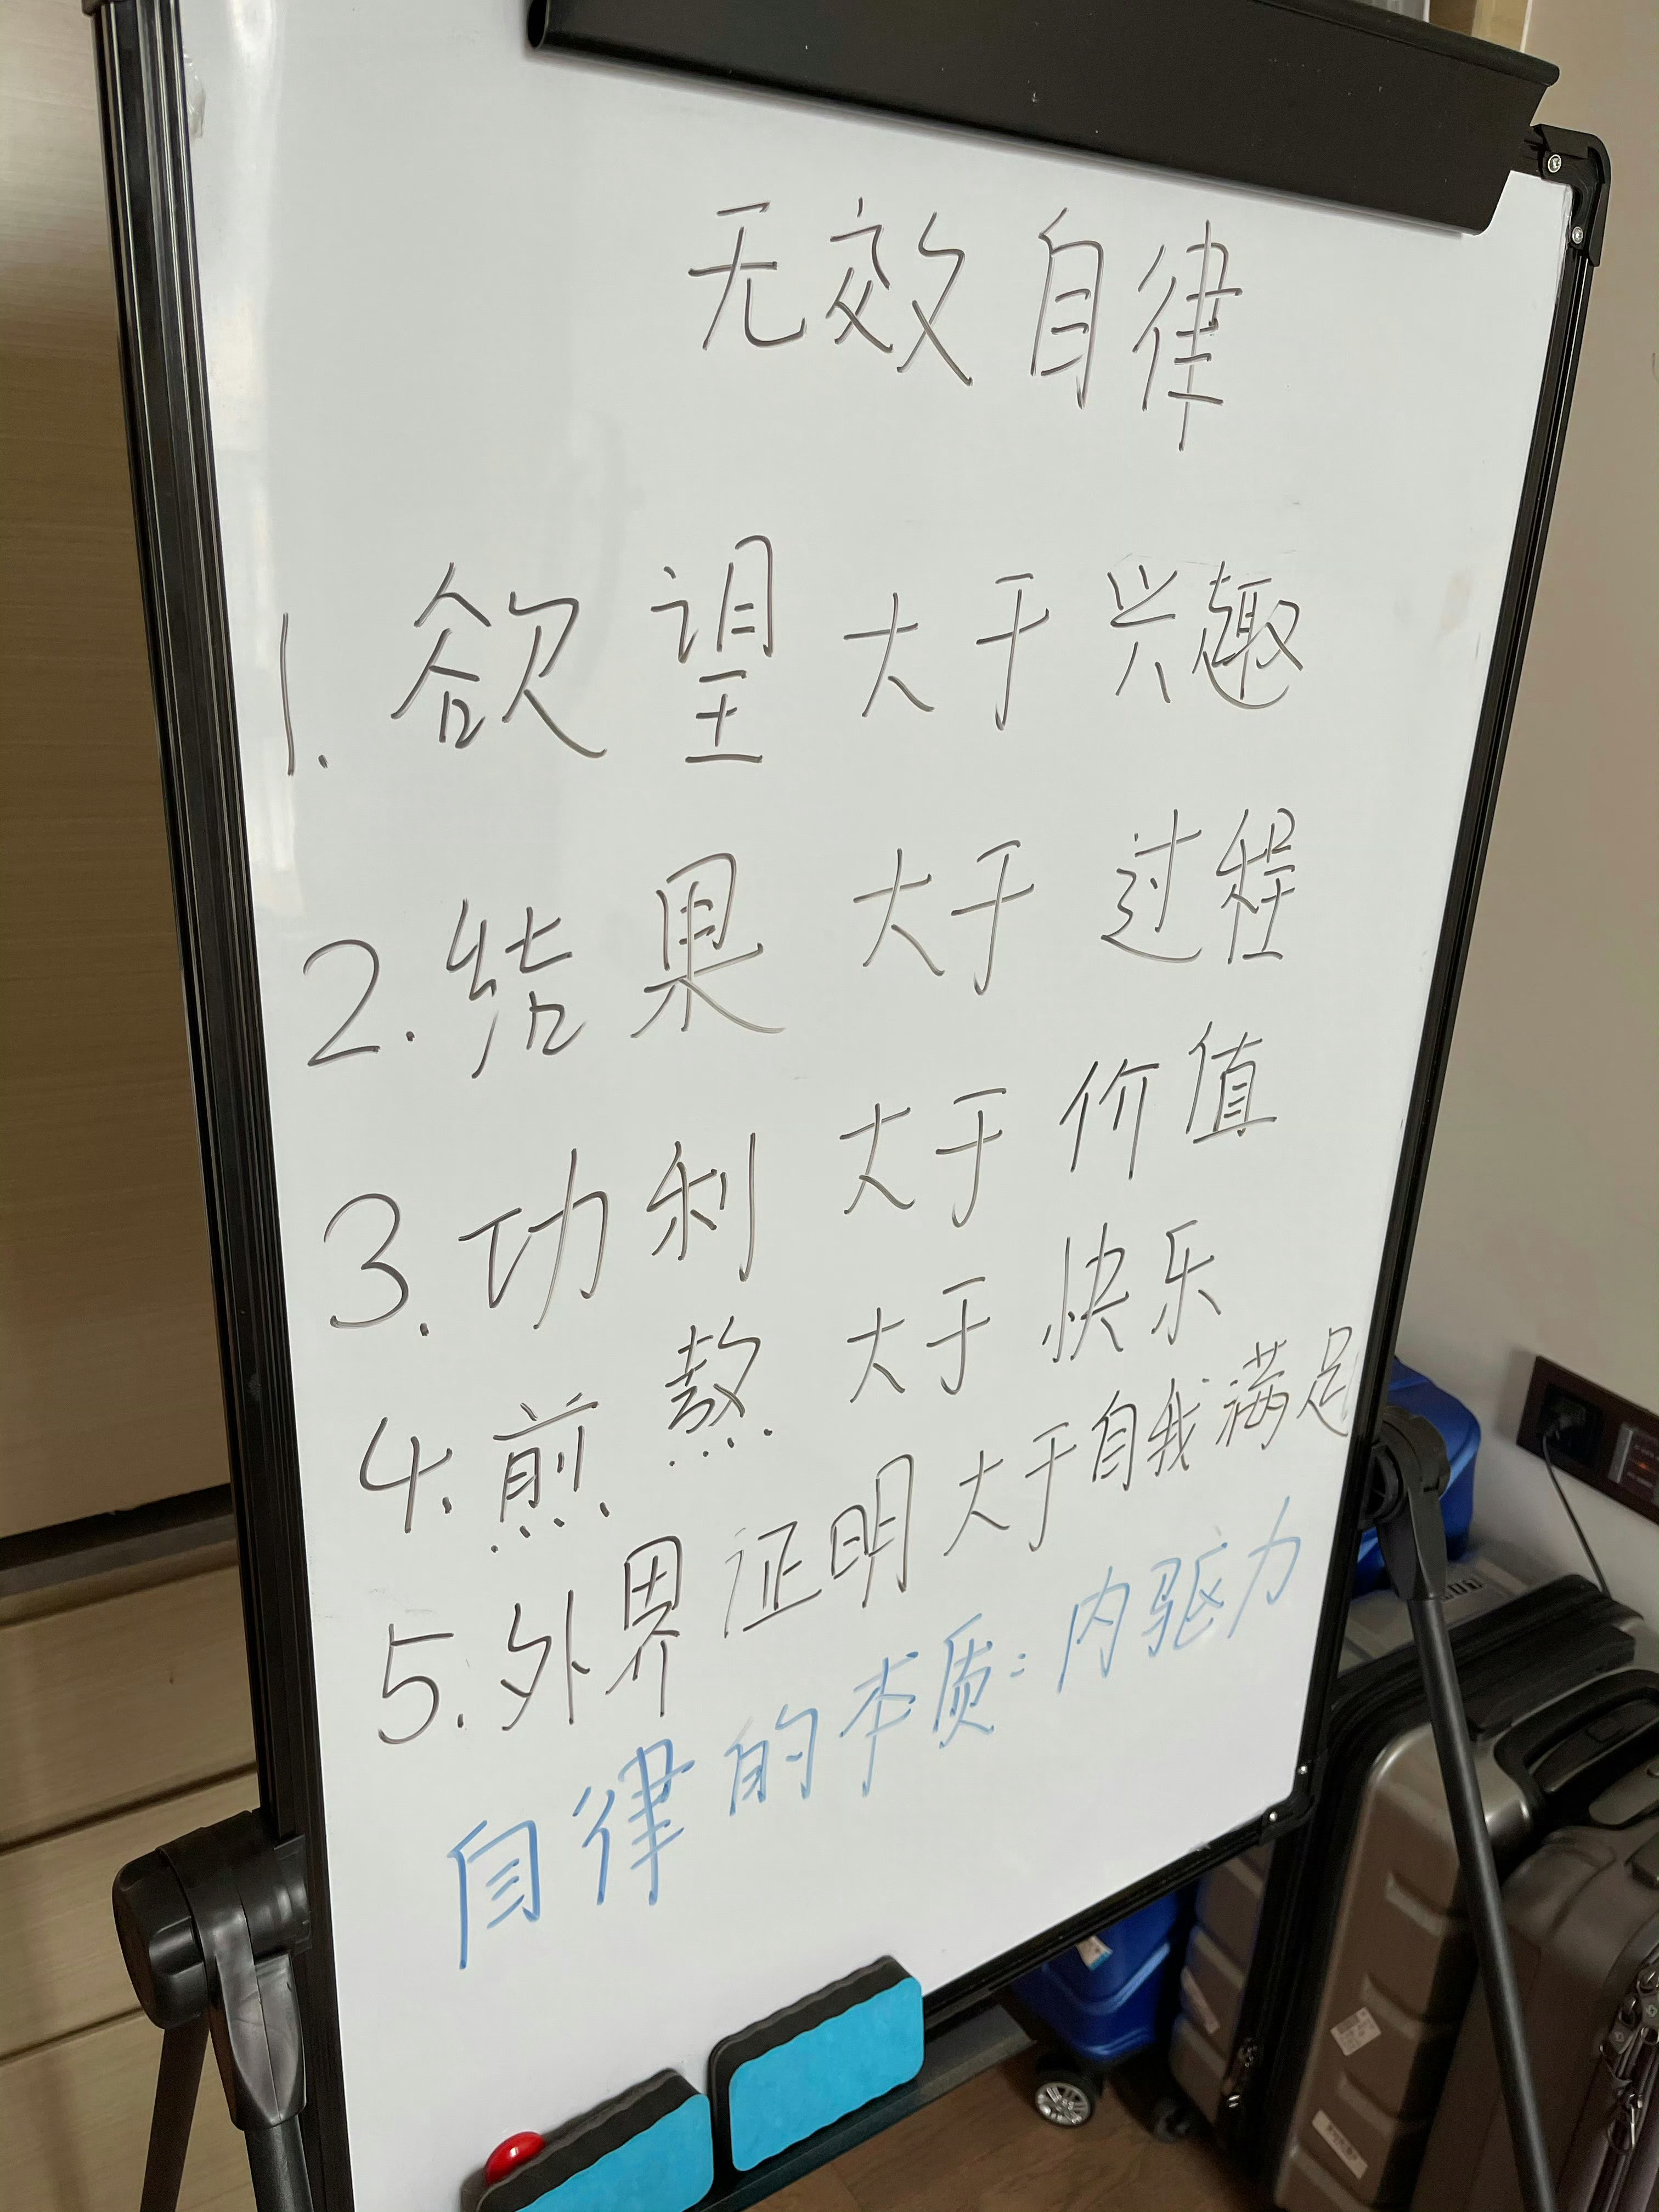 无效自律
1. 欲望大于兴趣
2. 结果大于过程
3. 功利大于价值
4. 煎熬大于快乐
5. 外界证明大于自我满足
自律的本质：内驱力